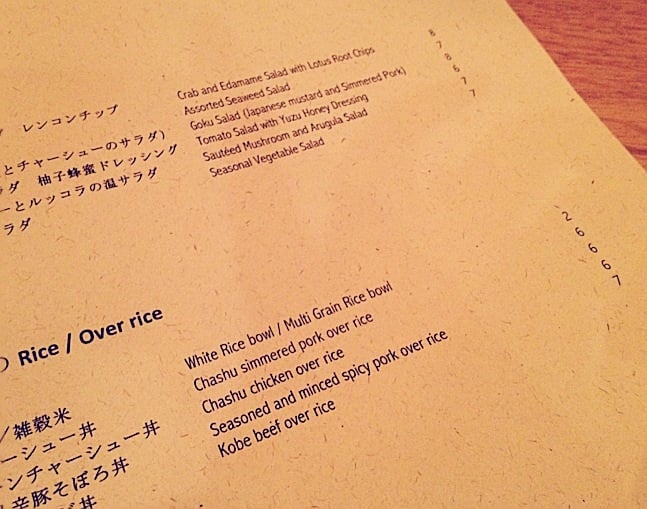 レンコンチップ Crab and Edamame Salad with Lotus Root Chips 8
Assorted Seaweed Salad 7
とチャーシューのサラダ) Goku Salad (Japanese mustard and Simmered Pork) 8
ダ 柚子蜂蜜ドレッシング Tomato Salad with Yuzu Honey Dressing 6
ーとルッコラの温サラダ Sautéed Mushroom and Arugula Salad 7
ラダ Seasonal Vegetable Salad 7
Rice / Over rice
/雑穀米 White Rice bowl / Multi Grain Rice bowl 2
ーシュー丼 Chashu simmered pork over rice 6
ンチャーシュー丼 Chashu chicken over rice 6
辛豚そぼろ丼 Seasoned and minced spicy pork over rice 6
丼 Kobe beef over rice 7